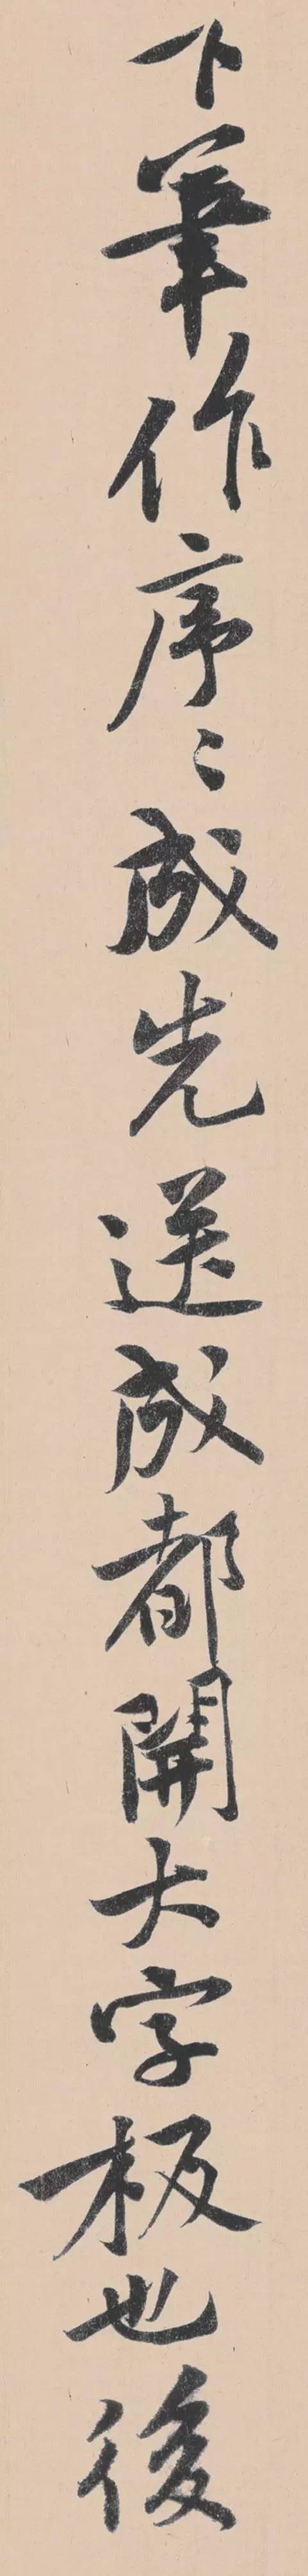 下筆作序〻成先送成都開大字板也後